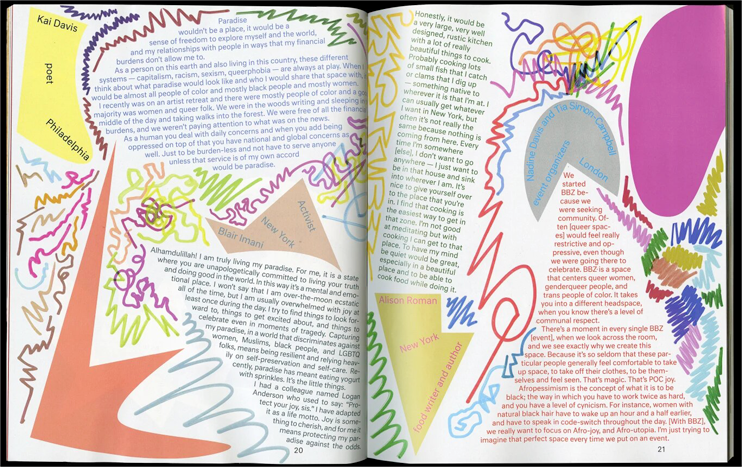 Kai Davis
poet
Philadelphia
Paradise
wouldn't be a place, it would be a
sense of freedom to explore myself and the world,
and my relationships with people in ways that my financial
burdens don't allow me to.
As a person on this earth and also living in this country, these different
systems — capitalism, racism, sexism, queerphobia — are always at play. When I
think about what paradise would look like and who I would share that space with, it
would be almost all people of color and mostly black people and mostly women.
I recently was on an artist retreat and there were mostly people of color and a
majority was women and queer folk. We were in the woods writing and sleeping in
middle of the day and taking walks into the forest. We were free of all the financial
burdens, and we weren't paying attention to what was on the news.
As a human you deal with daily concerns and when you add being
oppressed on top of that you have national and global concerns as
well. Just to be burden-less and not have to serve anyone
unless that service is of my own accord
would be paradise.
Blair Imani
New York
Activist
Alhamdulillah! I am truly living my paradise. For me, it is a state
where you are unapologetically committed to living your truth
and doing good in the world. In this way it's a mental and emo-
tional place. I won't say that I am over-the-moon ecstatic
all of the time, but I am usually overwhelmed with joy at
least once during the day. I try to find things to look for-
ward to, things to get excited about, and things to
celebrate even in moments of tragedy. Capturing
my paradise, in a world that discriminates against
women, Muslims, black people, and LGBTQ
folks, means being resilient and relying heav-
ily on self-preservation and self-care. Re-
cently, paradise has meant eating yogurt
with sprinkles. It's the little things.
I had a colleague named Logan
Anderson who used to say: "Pro-
tect your joy, sis." I have adapted
it as a life motto. Joy is some-
thing to cherish, and for me it
means protecting my par-
adise against the odds.
20
Honestly, it would be
a very large, very well
designed, rustic kitchen
with a lot of really
beautiful things to cook.
Probably cooking lots
of small fish that I catch
or clams that I dig up
— something native to
wherever it is that I'm at. I
can usually get whatever
I want in New York, but
often it's not really the
same because nothing is
coming from here. Every
time I'm somewhere
[else], I don't want to go
anywhere — I just want to
be in that house and sink
into wherever I am. It's
nice to give yourself over
to the place that you're
in. I find that cooking is
the easiest way to get in
that zone. I'm not good
at meditating but with
cooking I can get to that
place. To have my mind
be quiet would be great,
especially in a beautiful
place and to be able to
cook food while doing it.
Alison Roman
New York
food writer and author
Nadine Davis and Tia Simon-Campbell
event organizers
London
We
started
BBZ be-
cause we
were seeking
community. Of-
ten [queer spac-
es] would feel really
restrictive and op-
pressive, even though
we were going there to
celebrate. BBZ is a space
that centers queer women,
genderqueer people, and
trans people of color. It takes
you into a different headspace,
when you know there's a level of
communal respect.
There's a moment in every single BBZ
[event], when we look across the room,
and we see exactly why we create this
space. Because it's so seldom that these par-
ticular people generally feel comfortable to take
up space, to take off their clothes, to be them-
selves and feel seen. That's magic. That's POC joy.
Afropessimism is the concept of what it is to be
black; the way in which you have to work twice as hard,
and you have a level of cynicism. For instance, women with
natural black hair have to wake up an hour and a half earlier,
and have to speak in code-switch throughout the day. [With BBZ],
we really want to focus on Afro-joy, and Afro-utopia. I'm just trying to
imagine that perfect space every time we put on an event.
21